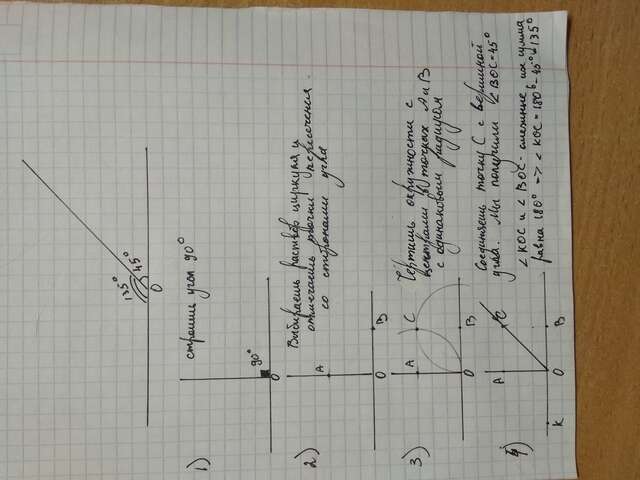 135°
45°
O
1)
строишь угол 90°
90°
O
2)
Выбираешь раствор циркуля и
отмечаешь точки пересечения
со сторонами угла
A
O
B
3)
Чертишь окружности с
центрами в точках А и В
с одинаковым радиусом
A
C
O
B
4)
Соединяешь точку С с вершиной
угла. Мы получили ∠BOC=45°
∠KOC и ∠BOC - смежные, их сумма
равна 180° => ∠KOC = 180°-45°=135°
A
C
K
O
B